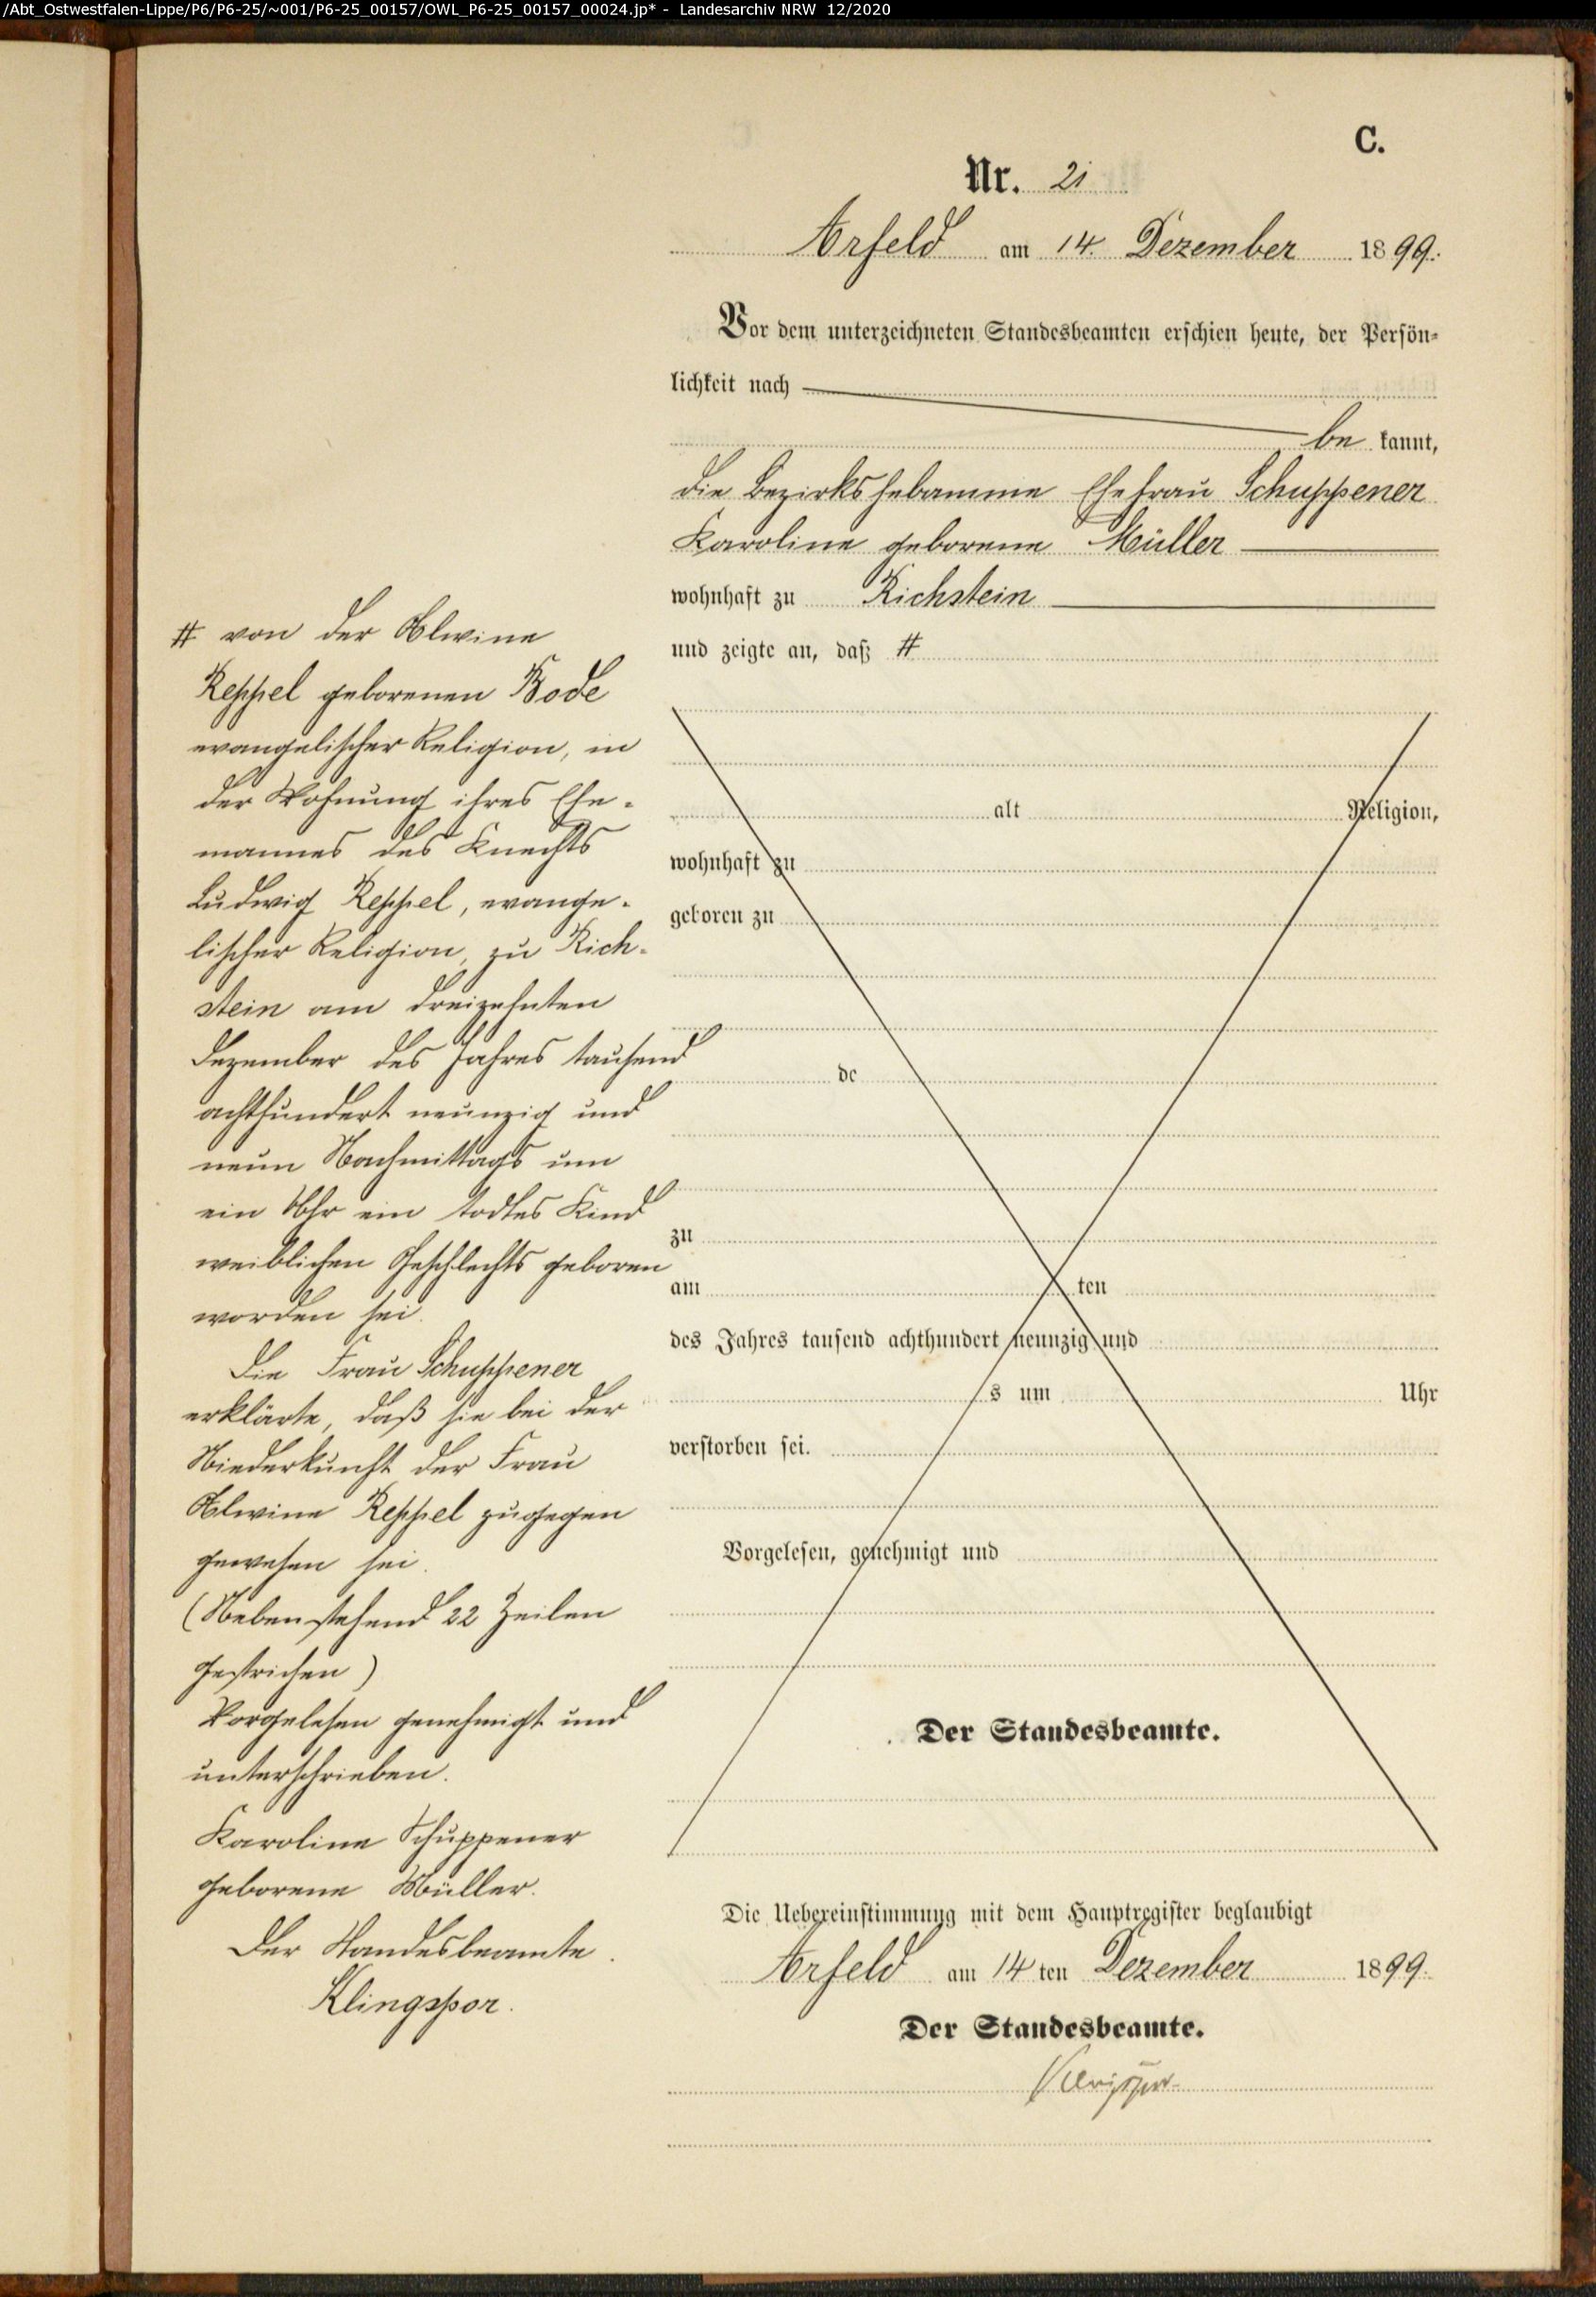 /Abt_Ostwestfalen-Lippe/P6/P6-25/~001/P6-25_00157/OWL_P6-25_00157_00024.jp* - Landesarchiv NRW 12/2020
C.
Nr. 21
Arfeld am 14. Dezember 1899.
Vor dem unterzeichneten Standesbeamten erschien heute, der Persön-
lichkeit nach
be kannt,
die Bezirkshebamme Ehefrau Schuppener
Karoline geborene Müller
wohnhaft zu Richstein
und zeigte an, daß #
# von der Alwine
Reppel geborenen Bode
evangelischer Religion, in
der Wohnung ihres Ehe-
mannes des Knechts
Ludwig Reppel, evange-
lischer Religion, zu Rich-
stein am dreizehnten
Dezember des Jahres tausend
achthundert neunzig und
neun Nachmittags um
ein Uhr ein todtes Kind
weiblichen Geschlechts geboren
worden sei.
Die Frau Schuppener
erklärte, daß sie bei der
Niederkunft der Frau
Alwine Reppel zugegen
gewesen sei.
(Nebenstehend 22 Zeilen
gestrichen)
Vorgelesen genehmigt und
unterschrieben.
Karoline Schuppener
geborene Müller.
Der Standesbeamte.
Klingspor.
alt Religion,
wohnhaft zu
geboren zu
de
zu
am ten
des Jahres tausend achthundert neunzig und
s um Uhr
verstorben sei.
Vorgelesen, genehmigt und
Der Standesbeamte.
Die Uebereinstimmung mit dem Hauptregister beglaubigt
Arfeld am 14 ten Dezember 1899.
Der Standesbeamte.
Klingspor